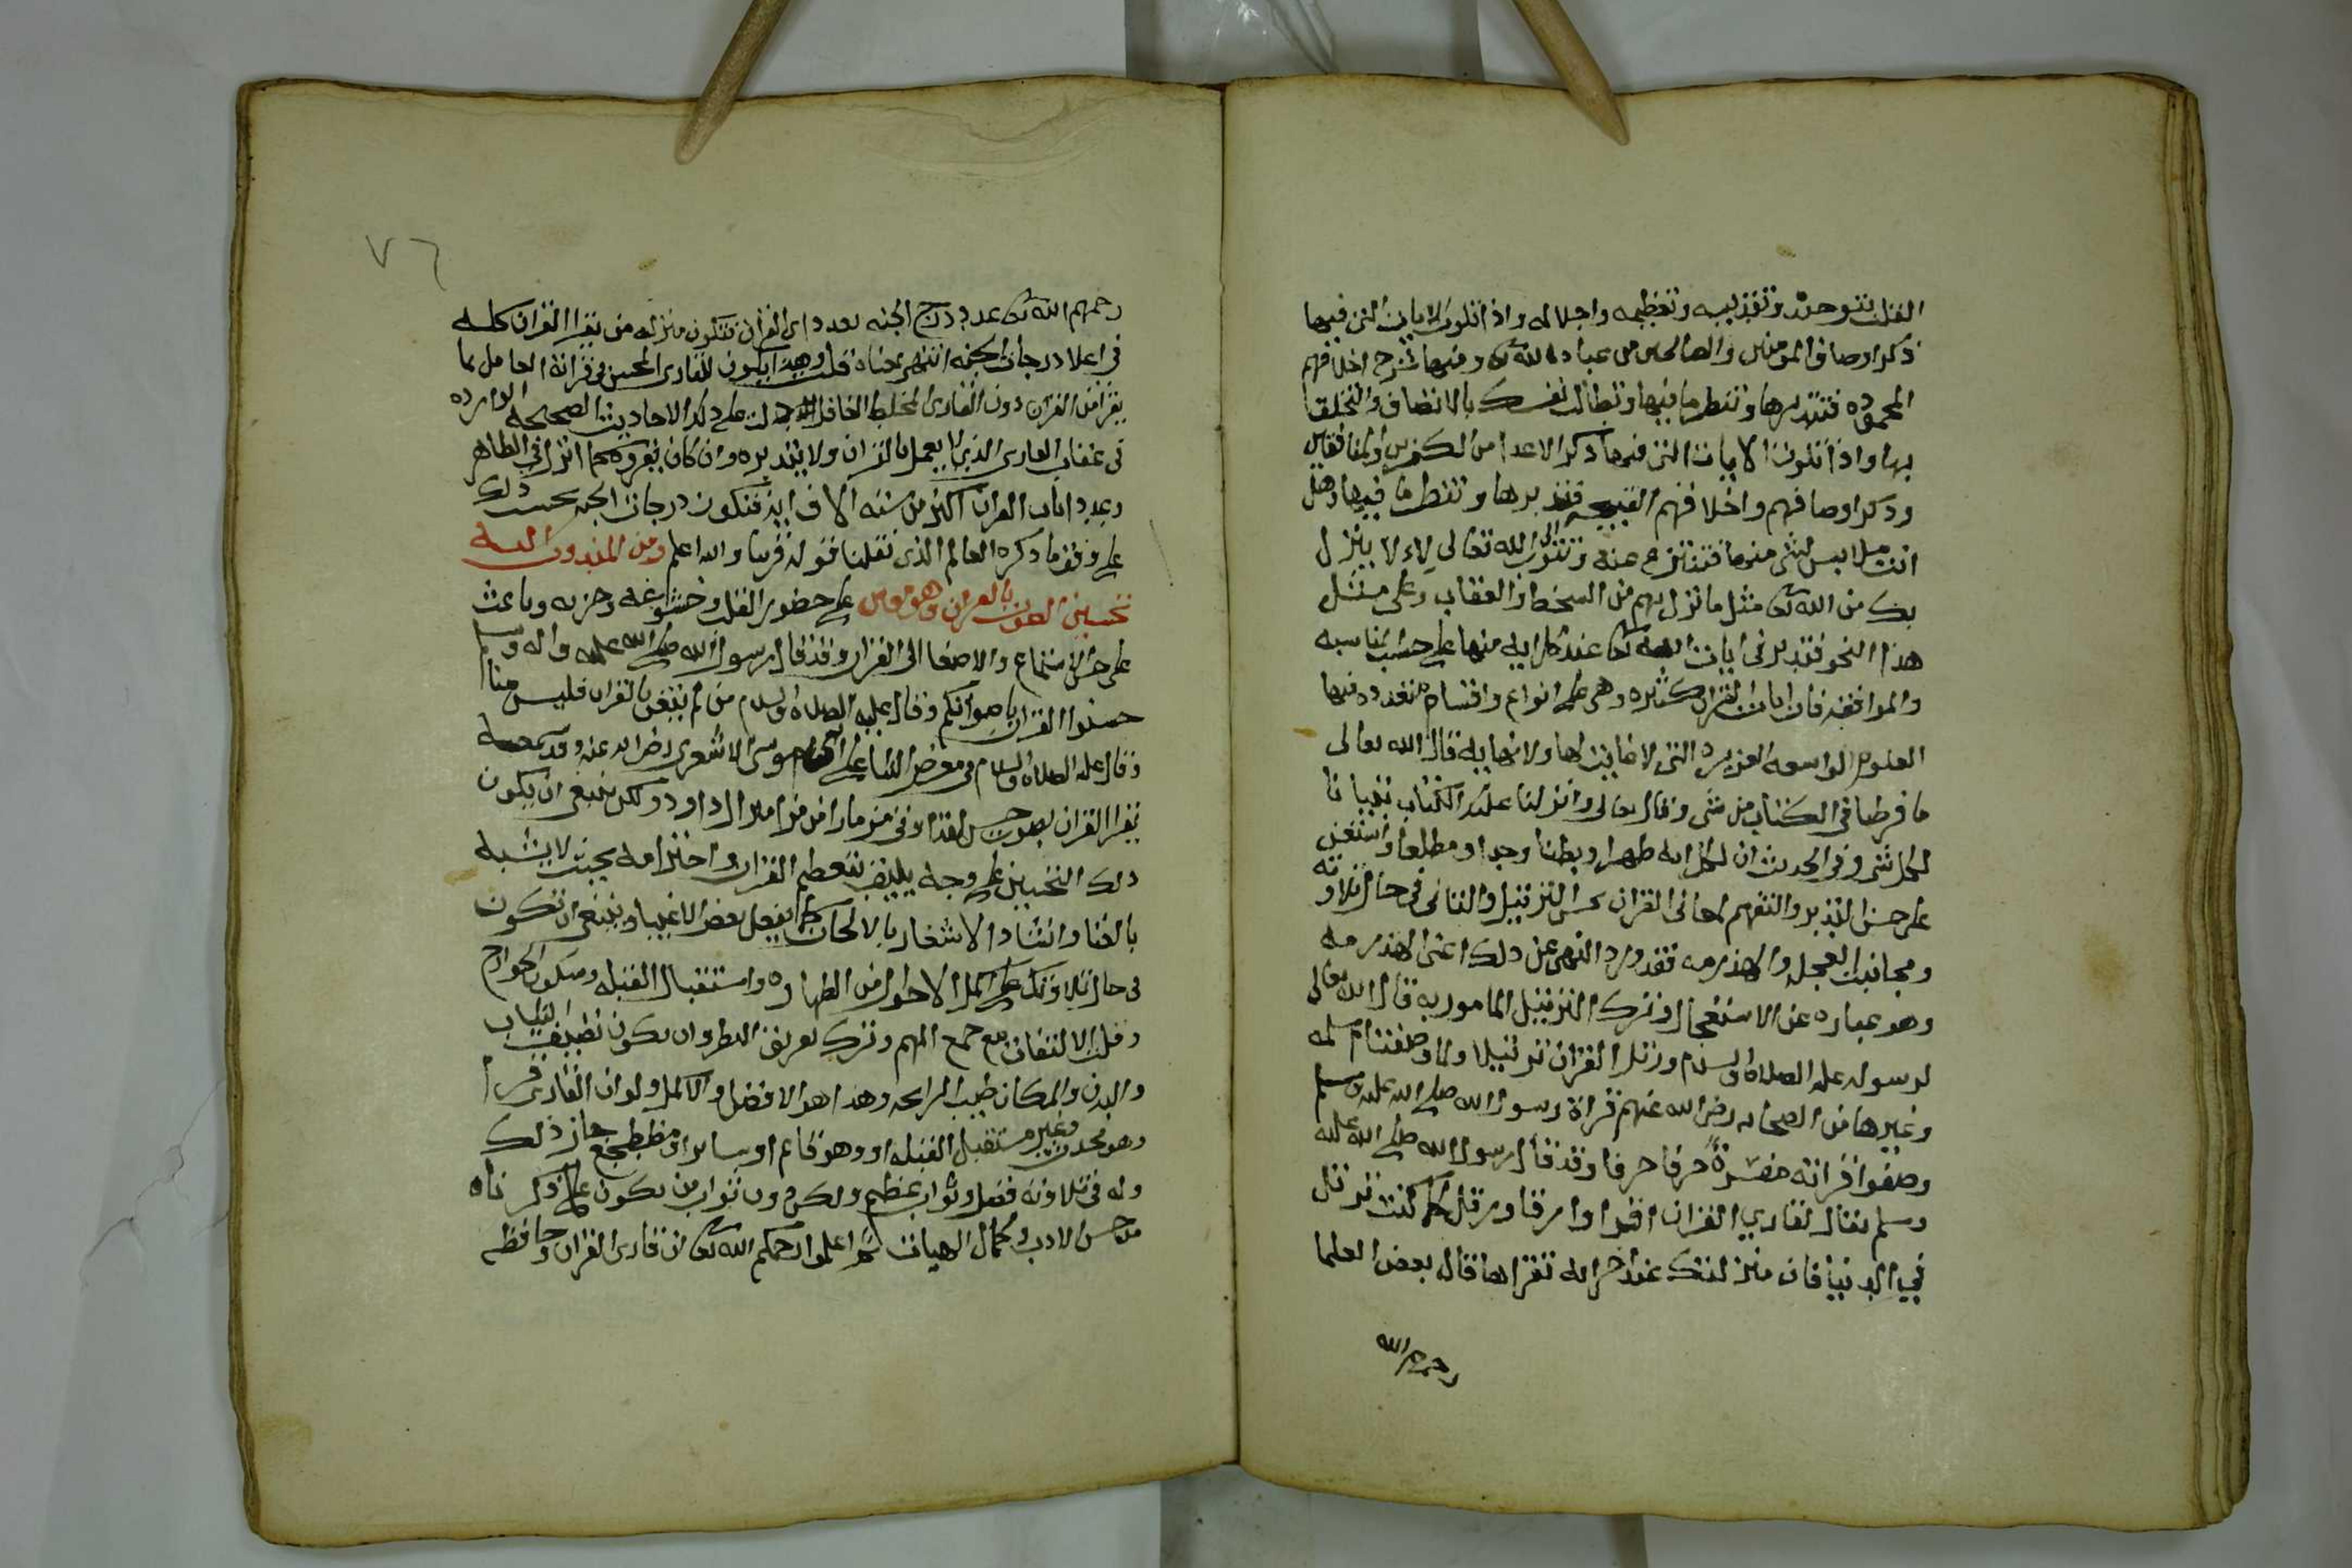 القلب بتوحيده وتقديسه وتعظيمه واجلاله واذا تلوت الايات التي فيها
ذكر اوصاف المومنين والصالحين من عباد الله تعالى وفيها شرح اخلاقهم
المحموده فتتدبرها وتنظر ما فيها وتطالب نفسك بالاتصاف والتخلق
بها واذا تلوت الايات التي فيها ذكر الاعدا من الكفرين والمنافقين
وذكر اوصافهم واخلاقهم القبيحه فتدبرها وتنظر ما فيها وهل
انت ملابس لشي منها فتنزع عنه وتتوب الى الله تعالى لاءلا ينزل
بك من الله تعالى مثل ما نزل بهم من السخط والعقاب وعلى مثل
هذا النحو فتدبر في ايات الله تعالى عند كل ايه منها على حسب المناسبه
والموافقه فان ايات القران كثيره وهي على انواع واقسام متعدده وفيها
العلوم الواسعه الغزيره التي لا غايه لها ولا نهايه قال الله تعالى
ما فرطنا في الكتاب من شي وقال تعالى وانزلنا عليك الكتاب تبيانا
لكل شي وفي الحديث ان لكل ايه ظهرا وبطنا وحدا ومطلعا واستعن
على حسن التدبر والتفهم لمعاني القران بحسن الترتيل والتاني في حال تلاوته
ومجانبة العجله والهذرمه فقد ورد النهي عن ذلك اعني الهذرمه
وهو عباره عن الاستعجال وترك الترتيل المامور به قال الله تعالى
لرسوله عليه الصلاه والسلام ورتل القران ترتيلا ولما وصفت ام سلمه
وغيرها من الصحابه رضي الله عنهم قراة رسول الله صلى الله عليه وسلم
وصفوا قراته مفسرةً حرفا حرفا وقد قال رسول الله صلى الله عليه
وسلم يقال لقاري القران اقرا وارقا ورتل كما كنت ترتل
في الدنيا فان منزلتك عند اخر ايه تقراها قال بعض العلما
رحمهم الله
٧٦
رحمهم الله تعالى عدد درج الجنه بعدد اي القران فتكون منزله من يقرا القران كله
في اعلا درجات الجنه انتهى بمعناه قلت وهذا يكون للقاري المحسن في قرائة العامل بما
يقرا من القران دون القاري المخلط الغافل دلت على ذلك الاحاديث الصحيحه الوارده
في عقاب القاري الذي لا يعمل بالقران ولا يتدبره وان كان يقروه كما انزل في الظاهر
وعدد ايات القران اكثر من سته الاف ايه فتكون درجات الجنه بحسب ذلك
على وفق ما ذكره العالم الذي نقلنا قوله قريبا والله اعلم ومن المندوب اليه
تحسين الصوت بالقران وهو معين على حضور القلب وخشوعه وحزنه وباعث
على حسن الاستماع والاصغا الى القران وقد قال رسول الله صلى الله عليه واله وسلم
حسنوا القران باصواتكم وقال عليه الصلاه والسلام من لم يتغن بالقران فليس منا
وقال عليه الصلاه والسلام في معرض الثنا على ابي موسى الاشعري رضي الله عنه وقد سمعه
يقرا القران بصوت حسن لقد اوتي مزمارا من مزامير ال داود ولكن ينبغي ان يكون
ذلك التحسين على وجه يليق بتعظيم القران واحترامه بحيث لا يشبه
بالغنا وانشاد الاشعار بالالحان كما يفعل بعض الاغبيا وينبغي ان تكون
في حال تلاوتك على اكمل الاحوال من الطهاره واستقبال القبله وسكون الجوارح
وقلت الالتفات مع جمع الهم وترك تفريق النظر وان يكون نظيف الثياب
والبدن والمكان طيب الرايحه وهذا هو الافضل والاكمل ولو ان القاري قرا
وهو محدث وغير مستقبل القبله او وهو قايم او ساير او مضطجع جاز ذلك
وله في تلاوته فضل وثواب عظيم ولكن دون ثواب من يكون على ما ذكرناه
من حسن الادب وكمال الهيات ثم اعلموا رحمكم الله تعالى ان قاري القران وحافظه